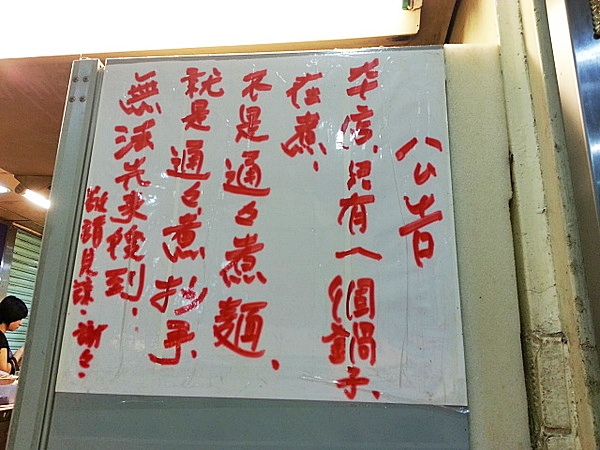 公告
本店只有一個鍋子、
在煮、
不是通通煮麵、
就是通通煮抄手、
無法先來後到、
敬請見諒、謝々、